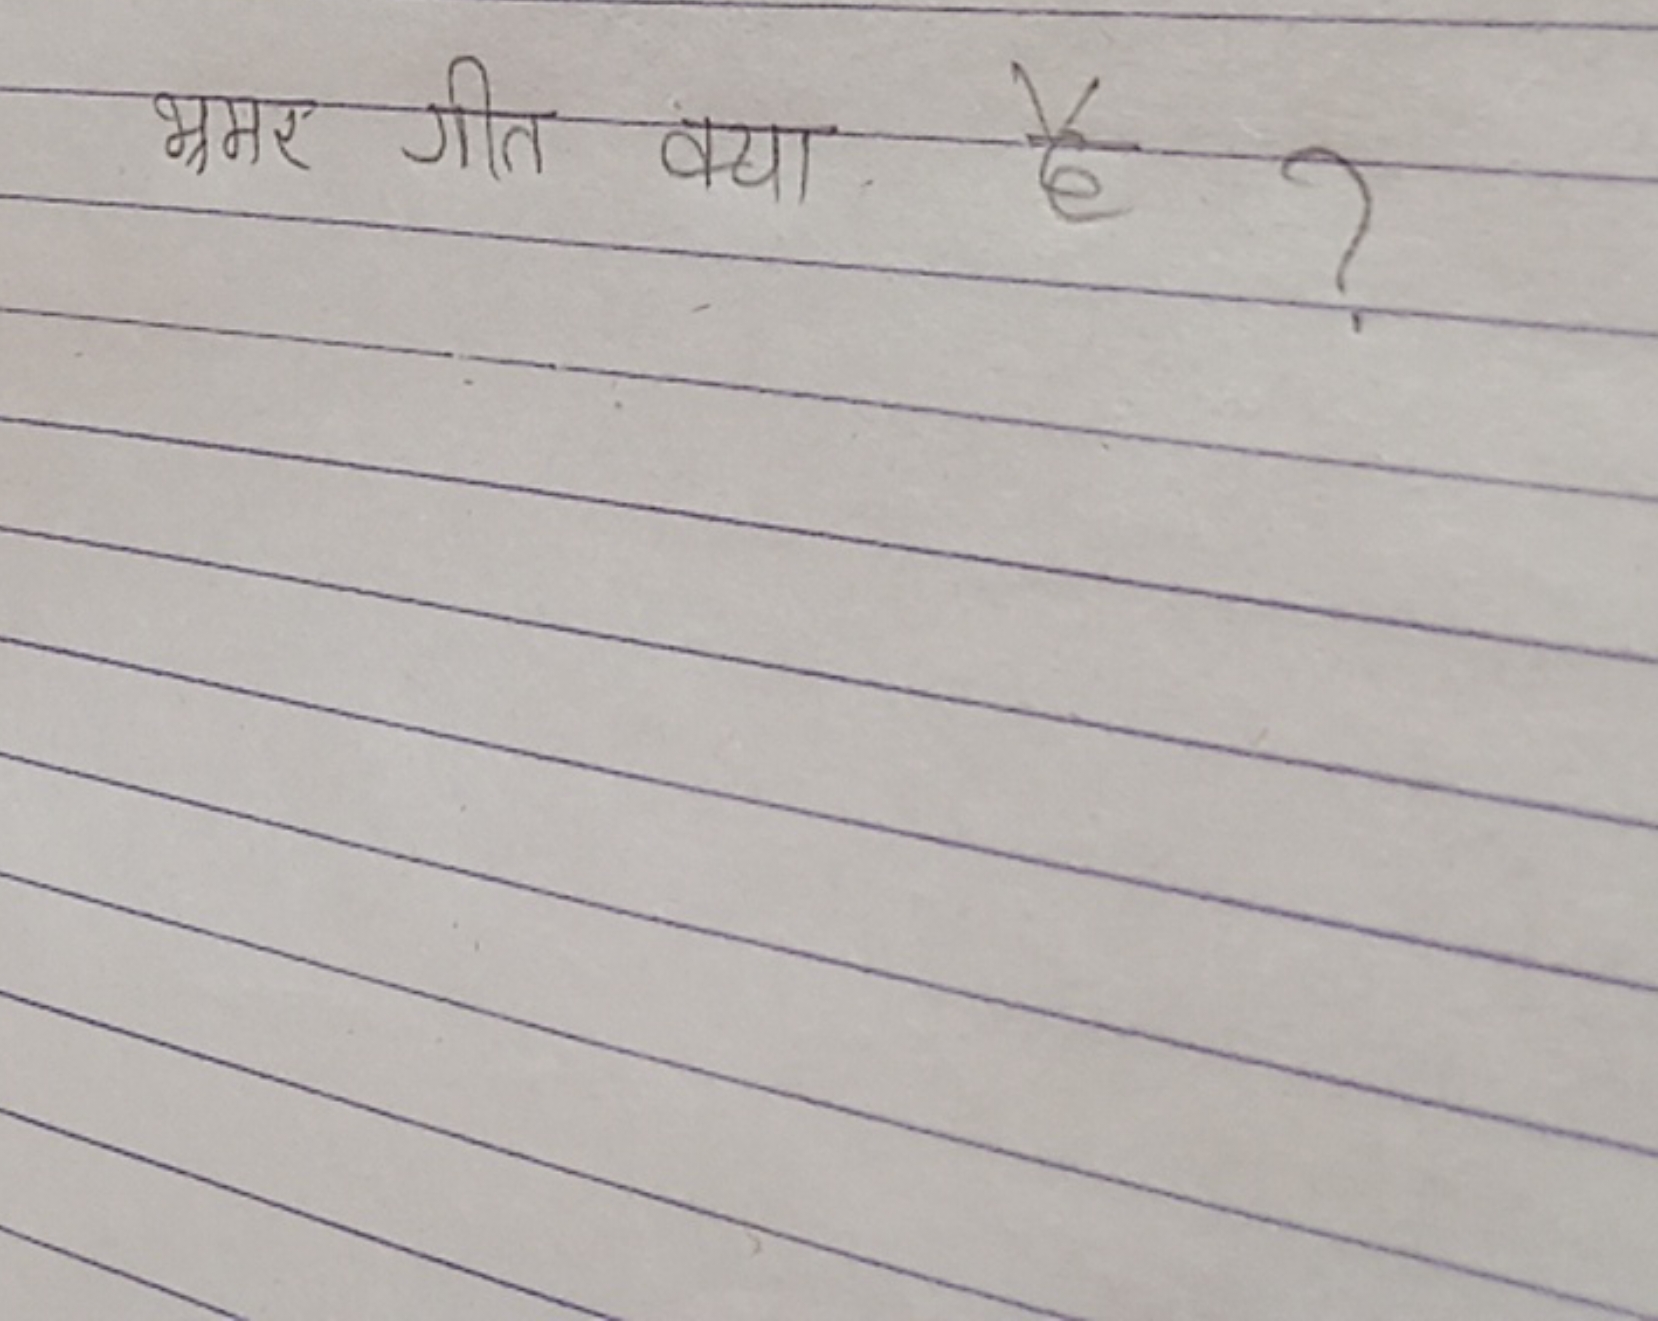 भ्रमर गीत क्या है ?